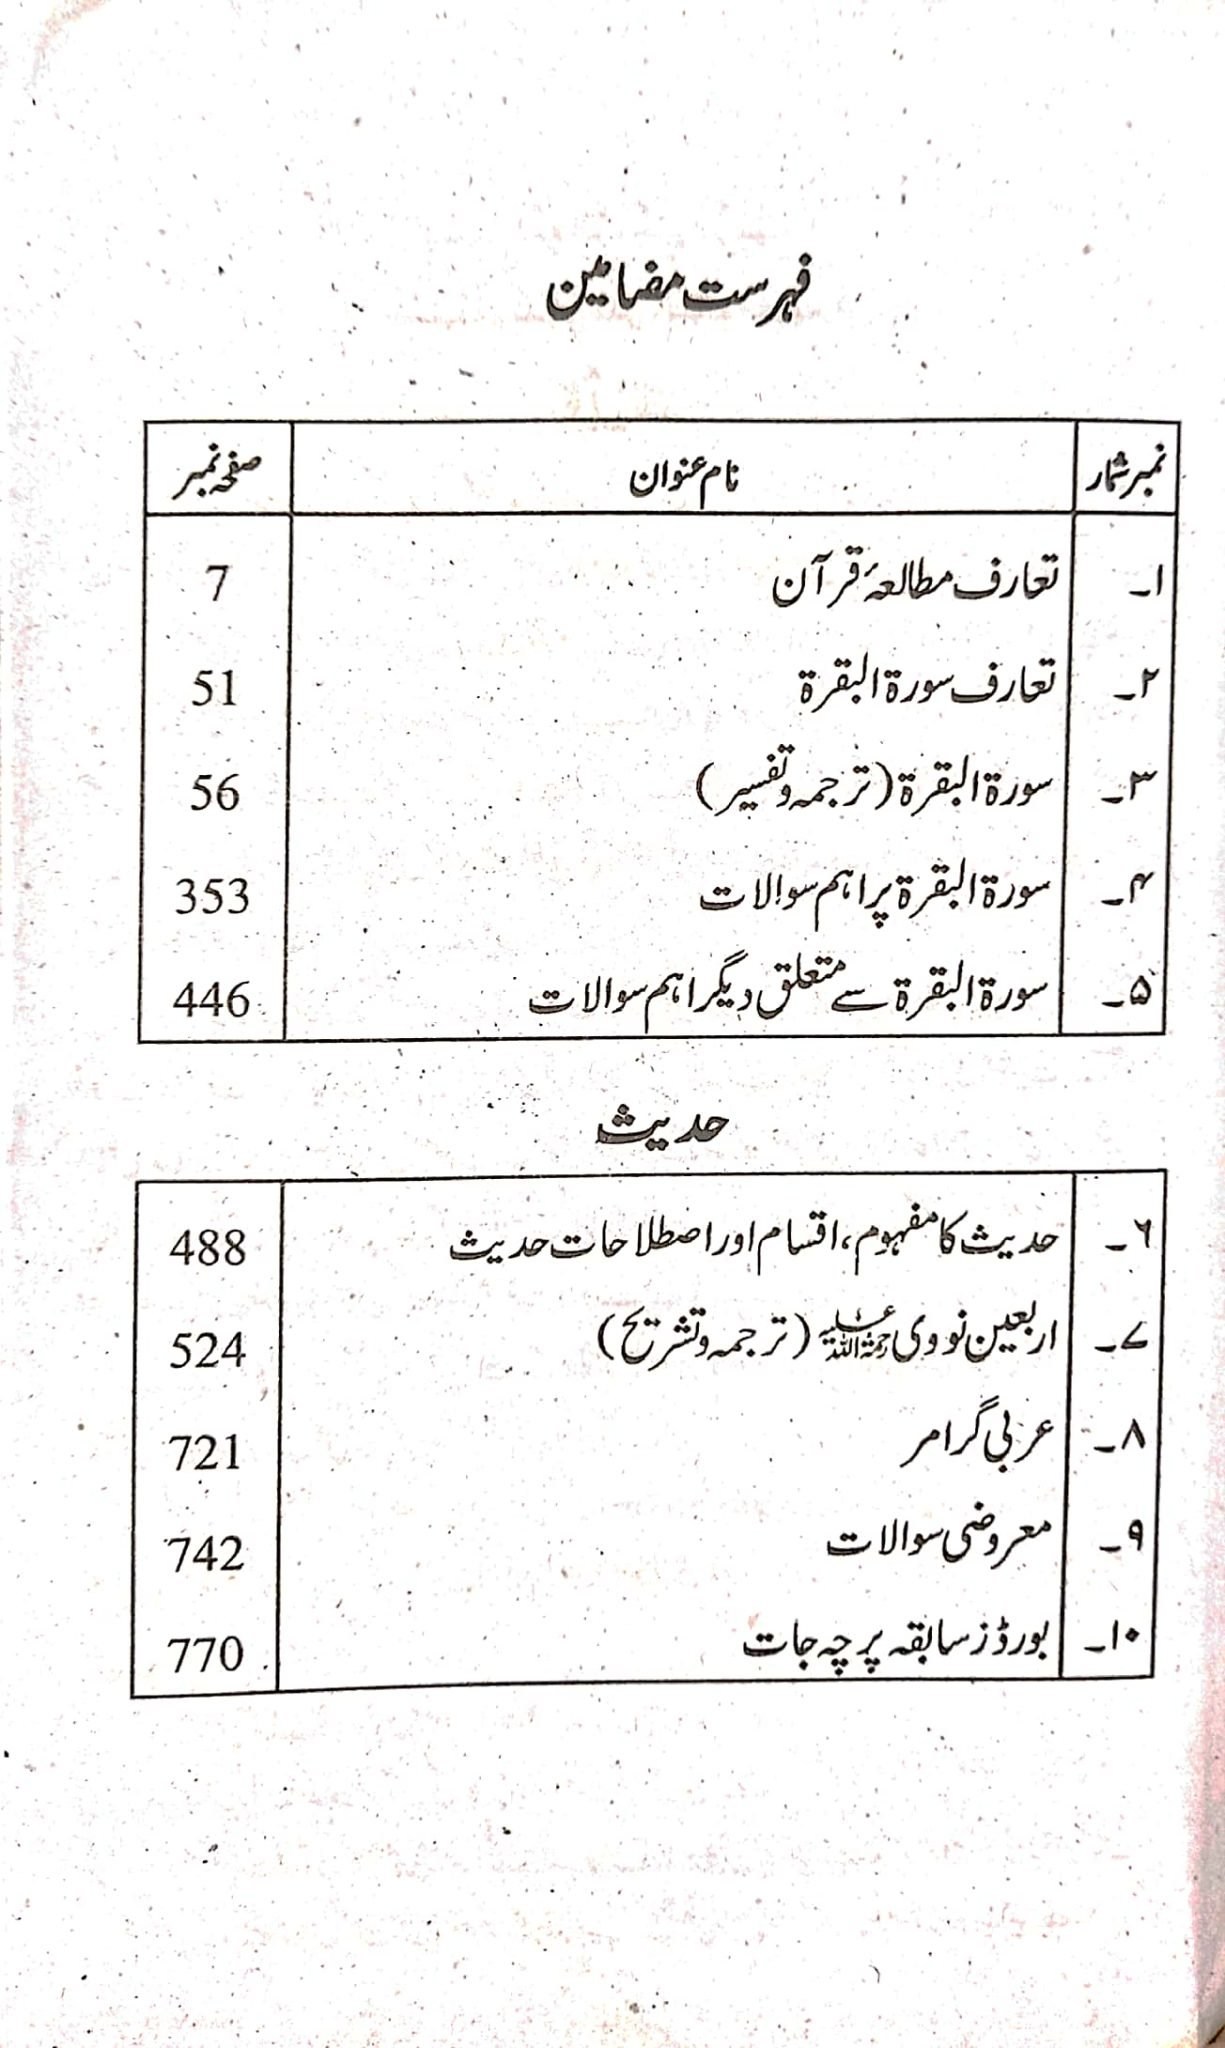 فہرست مضامین
نمبر شمار نام عنوان صفحہ نمبر
۱۔ تعارف مطالعۂ قرآن 7
۲۔ تعارف سورۃ البقرۃ 51
۳۔ سورۃ البقرۃ (ترجمہ و تفسیر) 56
۴۔ سورۃ البقرۃ پر اہم سوالات 353
۵۔ سورۃ البقرۃ سے متعلق دیگر اہم سوالات 446
حدیث
۶۔ حدیث کا مفہوم، اقسام اور اصطلاحات حدیث 488
۷۔ اربعین نووی رحمۃ اللہ علیہ (ترجمہ و تشریح) 524
۸۔ عربی گرامر 721
۹۔ معروضی سوالات 742
۱۰۔ بورڈز سابقہ پرچہ جات 770